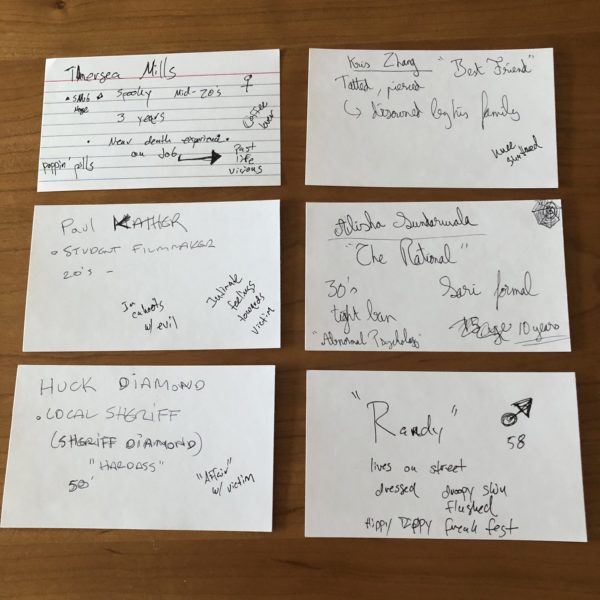 Thersea Mills
Spooky Mid-20's ♀
3 years
Coffee lover
• Near death experience •
on Job → Past
life
visions
poppin' pills
Kris Zhang "Best Friend"
Tatted, pierced
↳ disowned by his family
Paul KATHER
• STUDENT FILMMAKER
20's -
In
cahoots
w/ evil
Intimate
feelings
towards
victim
Alisha Sundarwala
"The Rational"
30's Sari formal
tight bun
"Abnormal Psychology" 10 years
HUCK DIAMOND
• LOCAL SHERIFF
(SHERIFF DIAMOND)
"HARDASS"
50'
"Affair"
w/ victim
"Randy" ♂
58
lives on street
dressed droopy skin
flushed
Hippy Dippy freak fest